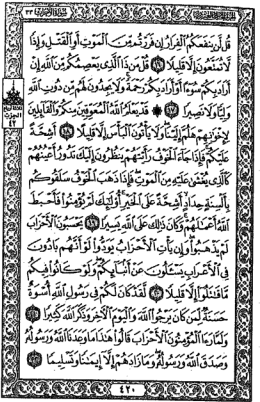 ٣٣
قُل لَّن يَنفَعَكُمُ ٱلْفِرَارُ إِن فَرَرْتُم مِّنَ ٱلْمَوْتِ أَوِ ٱلْقَتْلِ وَإِذًا
لَّا تُمَتَّعُونَ إِلَّا قَلِيلًا ١٦ قُلْ مَن ذَا ٱلَّذِى يَعْصِمُكُم مِّنَ ٱللَّهِ إِنْ
أَرَادَ بِكُمْ سُوٓءًا أَوْ أَرَادَ بِكُمْ رَحْمَةً وَلَا يَجِدُونَ لَهُم مِّن دُونِ ٱللَّهِ
وَلِيًّا وَلَا نَصِيرًا ١٧ ۞ قَدْ يَعْلَمُ ٱللَّهُ ٱلْمُعَوِّقِينَ مِنكُمْ وَٱلْقَآئِلِينَ
لِإِخْوَٰنِهِمْ هَلُمَّ إِلَيْنَا وَلَا يَأْتُونَ ٱلْبَأْسَ إِلَّا قَلِيلًا ١٨ أَشِحَّةً
عَلَيْكُمْ فَإِذَا جَآءَ ٱلْخَوْفُ رَأَيْتَهُمْ يَنظُرُونَ إِلَيْكَ تَدُورُ أَعْيُنُهُمْ
كَٱلَّذِى يُغْشَىٰ عَلَيْهِ مِنَ ٱلْمَوْتِ فَإِذَا ذَهَبَ ٱلْخَوْفُ سَلَقُوكُم
بِأَلْسِنَةٍ حِدَادٍ أَشِحَّةً عَلَى ٱلْخَيْرِ أُو۟لَٰٓئِكَ لَمْ يُؤْمِنُوا۟ فَأَحْبَطَ
ٱللَّهُ أَعْمَٰلَهُمْ وَكَانَ ذَٰلِكَ عَلَى ٱللَّهِ يَسِيرًا ١٩ يَحْسَبُونَ ٱلْأَحْزَابَ
لَمْ يَذْهَبُوا۟ وَإِن يَأْتِ ٱلْأَحْزَابُ يَوَدُّوا۟ لَوْ أَنَّهُم بَادُونَ
فِى ٱلْأَعْرَابِ يَسْـَٔلُونَ عَنْ أَنۢبَآئِكُمْ وَلَوْ كَانُوا۟ فِيكُم
مَّا قَٰتَلُوٓا۟ إِلَّا قَلِيلًا ٢٠ لَّقَدْ كَانَ لَكُمْ فِى رَسُولِ ٱللَّهِ أُسْوَةٌ
حَسَنَةٌ لِّمَن كَانَ يَرْجُوا۟ ٱللَّهَ وَٱلْيَوْمَ ٱلْءَاخِرَ وَذَكَرَ ٱللَّهَ كَثِيرًا ٢١
وَلَمَّا رَءَا ٱلْمُؤْمِنُونَ ٱلْأَحْزَابَ قَالُوا۟ هَٰذَا مَا وَعَدَنَا ٱللَّهُ وَرَسُولُهُۥ
وَصَدَقَ ٱللَّهُ وَرَسُولُهُۥ وَمَا زَادَهُمْ إِلَّآ إِيمَٰنًا وَتَسْلِيمًا ٢٢
الحزب
٤٢
٤٢٠